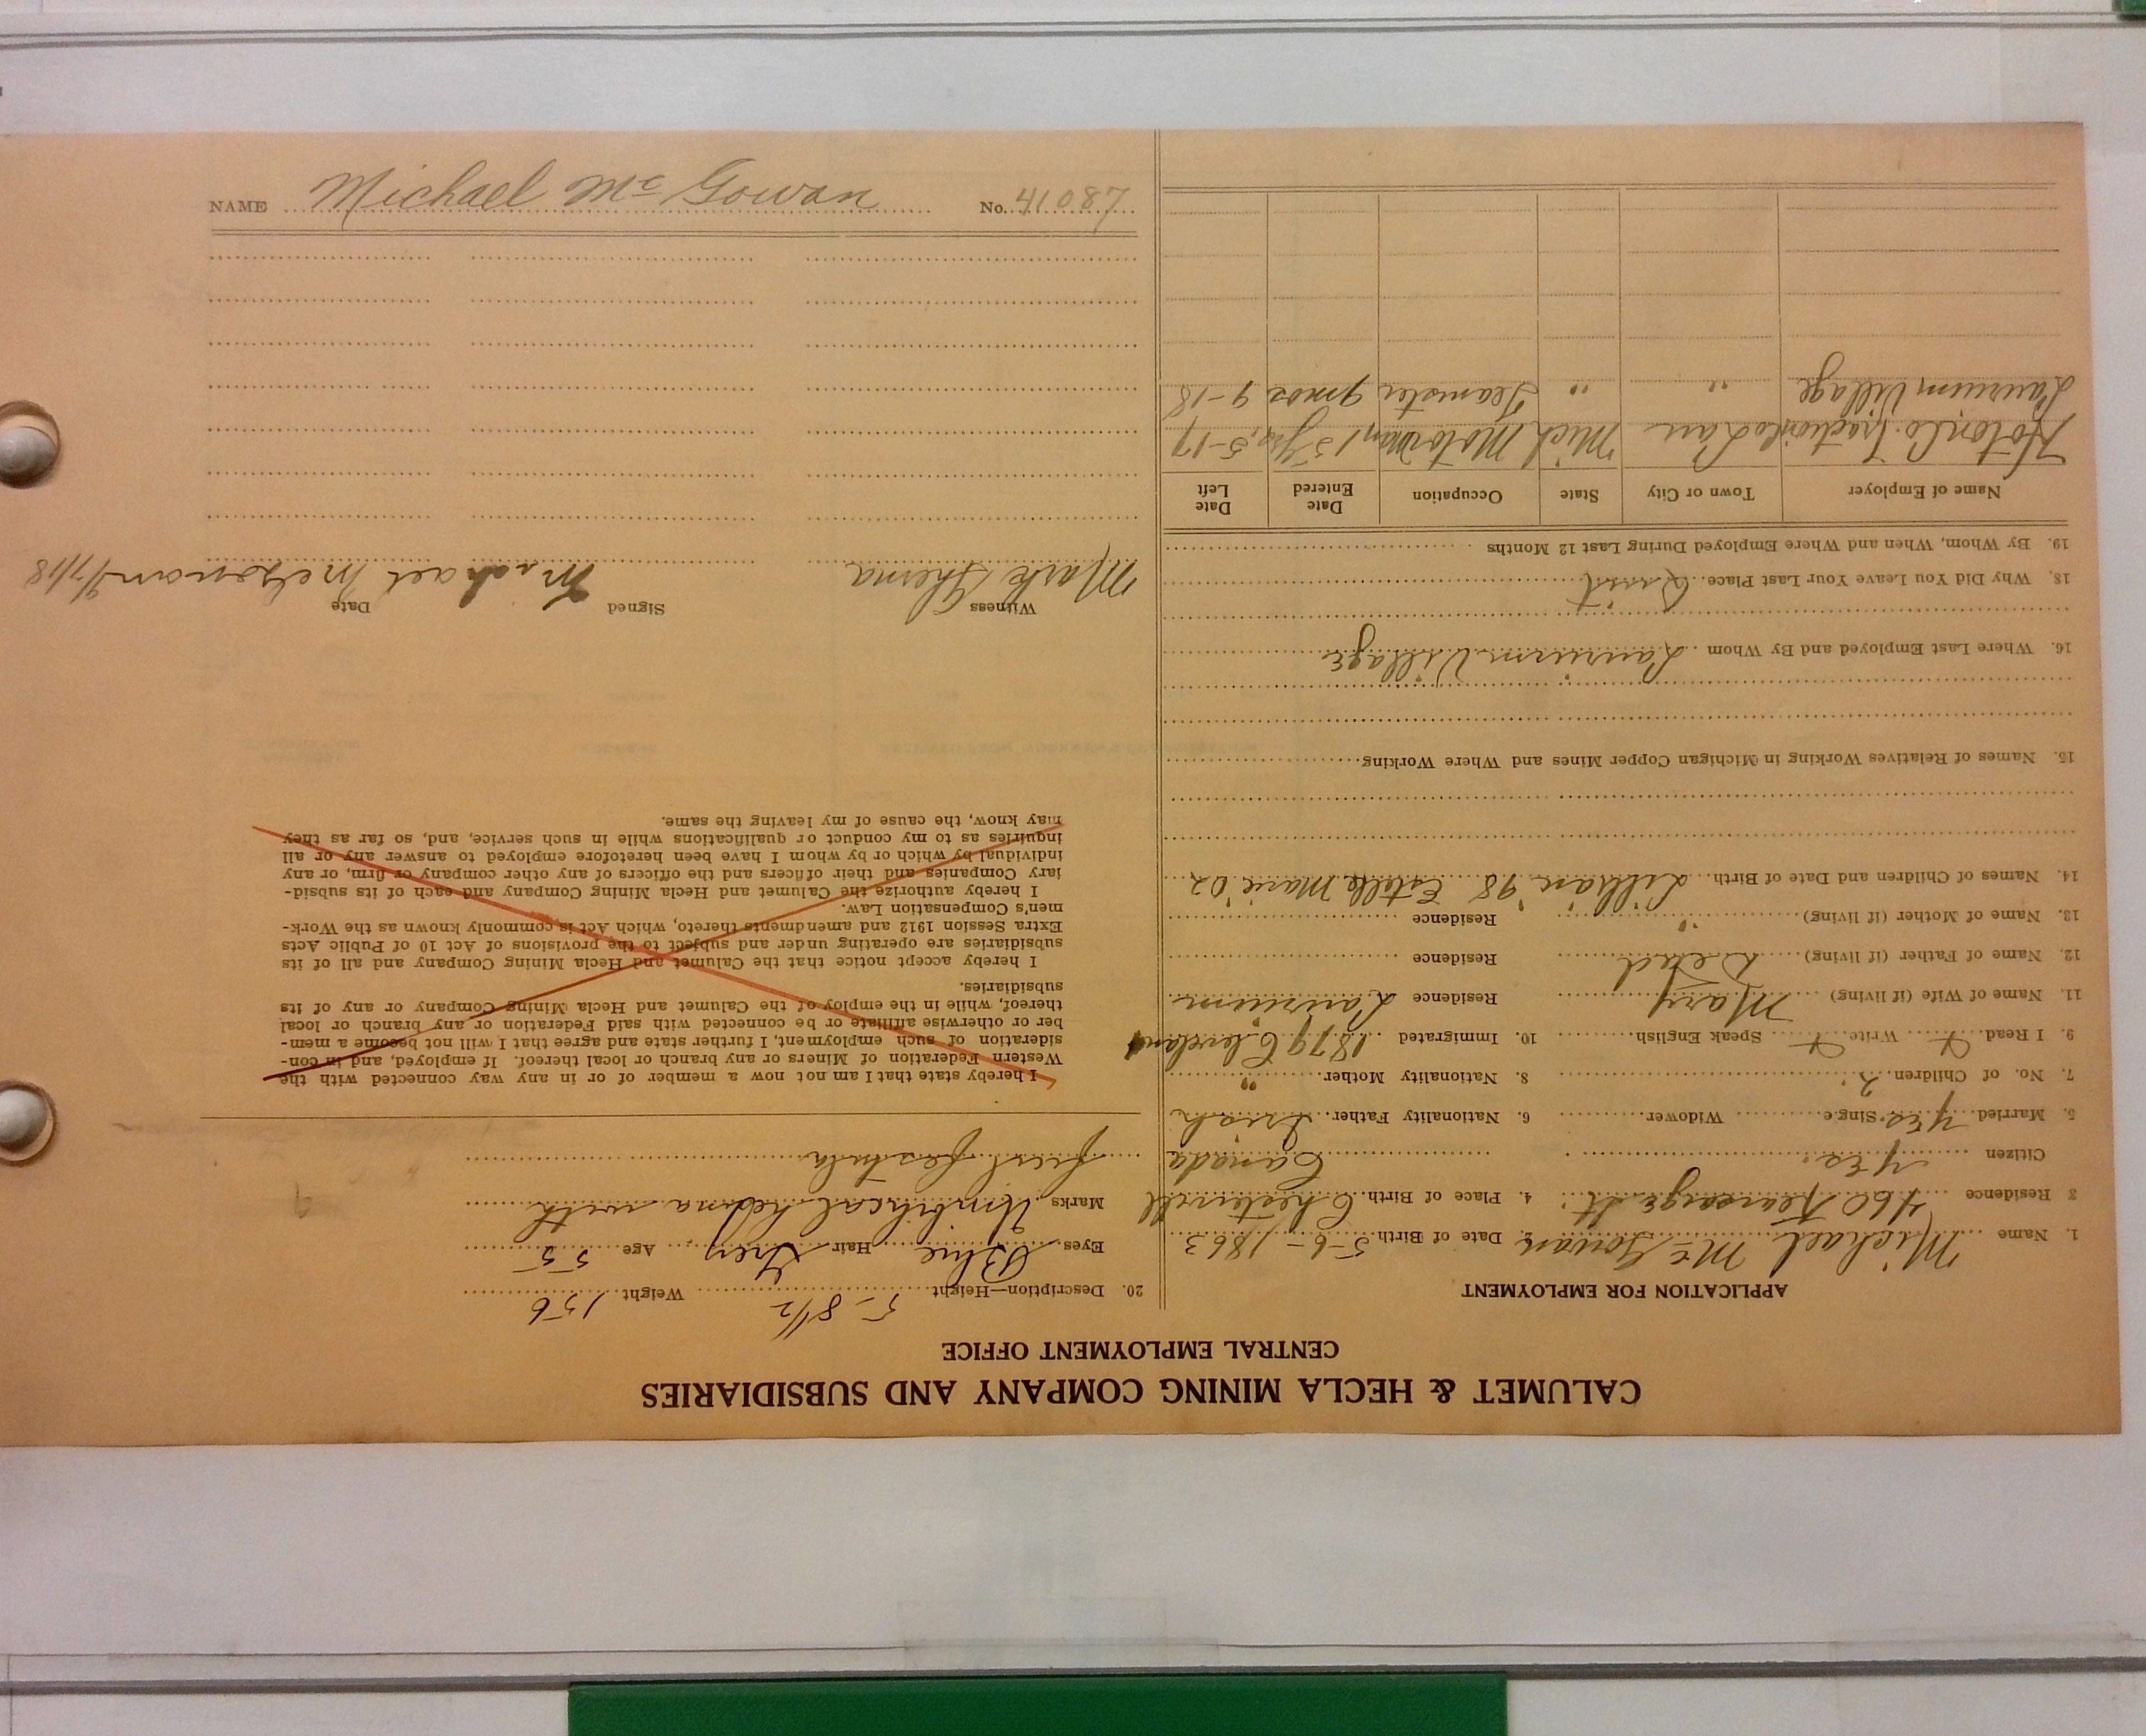 NAME Michael Mc Gowan No. 41087
CALUMET & HECLA MINING COMPANY AND SUBSIDIARIES
CENTRAL EMPLOYMENT OFFICE
APPLICATION FOR EMPLOYMENT
1. Name Michael Mc Gowan 2. Date of Birth 5-6-1863
3 Residence 460 Kearsarge St. 4. Place of Birth Chesterville
Citizen Yes. Canada
5. Married Yes. Single Widower 6. Nationality Father Irish
7. No. of Children 2. 8. Nationality Mother "
9. I Read Write Speak English 10. Immigrated 1879 Cleveland
11. Name of Wife (if living) Mary Residence Laurium
12. Name of Father (if living) Dead Residence
13. Name of Mother (if living) " Residence
14. Names of Children and Date of Birth Lillian '98 Estelle Marie '02
15. Names of Relatives Working in Michigan Copper Mines and Where Working
16. Where Last Employed and By Whom Laurium Village
18. Why Did You Leave Your Last Place. Quit
19. By Whom, When and Where Employed During Last 12 Months
Name of Employer Town or City State Occupation Date Entered Date Left
Hoton Co. Traction Co Lau Mich Motorman 15 yrs. 5-17
Laurium Village " " Teamster 9 mos 9-18
20. Description—Height 5-8 1/2 Weight 156
Eyes Blue Hair Grey Age 55
Marks Umbilical with
I hereby state that I am not now a member of or in any way connected with the
Western Federation of Miners or any branch or local thereof. If employed, and in con-
sideration of such employment, I further state and agree that I will not become a mem-
ber or otherwise affiliate or be connected with said Federation or any branch or local
thereof, while in the employ of the Calumet and Hecla Mining Company or any of its
subsidiaries.
I hereby accept notice that the Calumet and Hecla Mining Company and all of its
subsidiaries are operating under and subject to the provisions of Act 10 of Public Acts
Extra Session 1912 and amendments thereto, which Act is commonly known as the Work-
men's Compensation Law.
I hereby authorize the Calumet and Hecla Mining Company and each of its subsid-
iary Companies and their officers and the officers of any other company or firm, or any
individual by which or by whom I have been heretofore employed to answer any or all
inquiries as to my conduct or qualifications while in such service, and, so far as they
may know, the cause of my leaving the same.
Witness Signed Date
Mark Michael McGowan 9/7/18